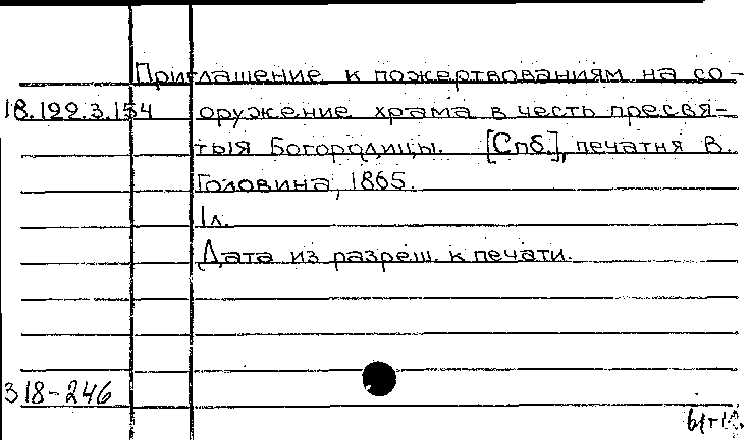 Приглашение к пожертвованиям на со-
18.122.3.154 оружение храма в честь пресвя-
тыя Богородицы. [Спб.], печатня В.
Головина, 1865.
1л.
Дата из разреш. к печати.
318-246